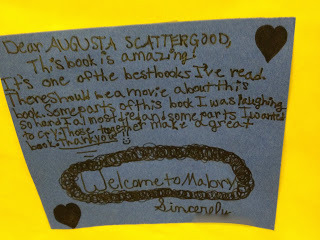 Dear AUGUSTA SCATTERGOOD,
This book is amazing!
It's one of the best books I've read.
There should be a movie about this
book. Some parts of this book I was laughing
so hard I almost died and some parts I wanted
to cry. Those together make a great
book. Thank you!!
Welcome to Malory
Sincerely